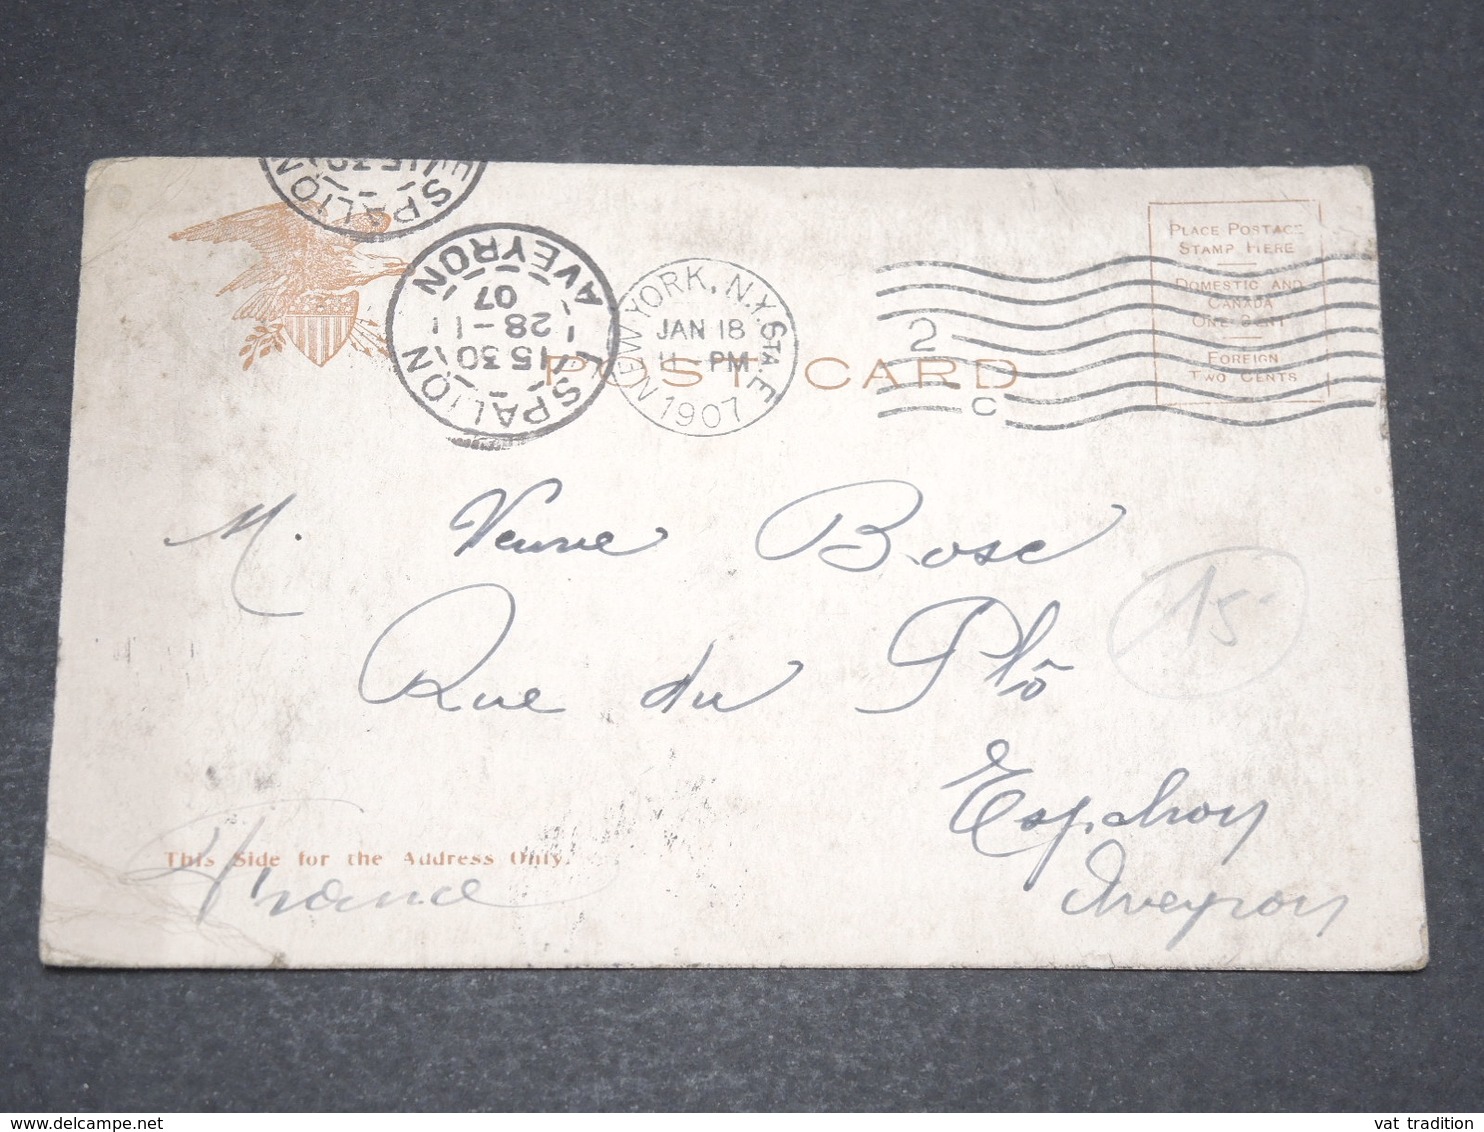 ESPALION
15 30
ESPALION
AVEYRON
15 30
28 - 1
07
NEW YORK, N.Y. STA. E
JAN 18
11 - PM
1907
2
C
PLACE POSTAGE
STAMP HERE
DOMESTIC AND
CANADA
ONE CENT
FOREIGN
TWO CENTS
POST CARD
M. Veuve Bosc
15
Rue du Plô
Espalion
Aveyron
This Side for the Address Only.
France
delcampe.net
vat tradition